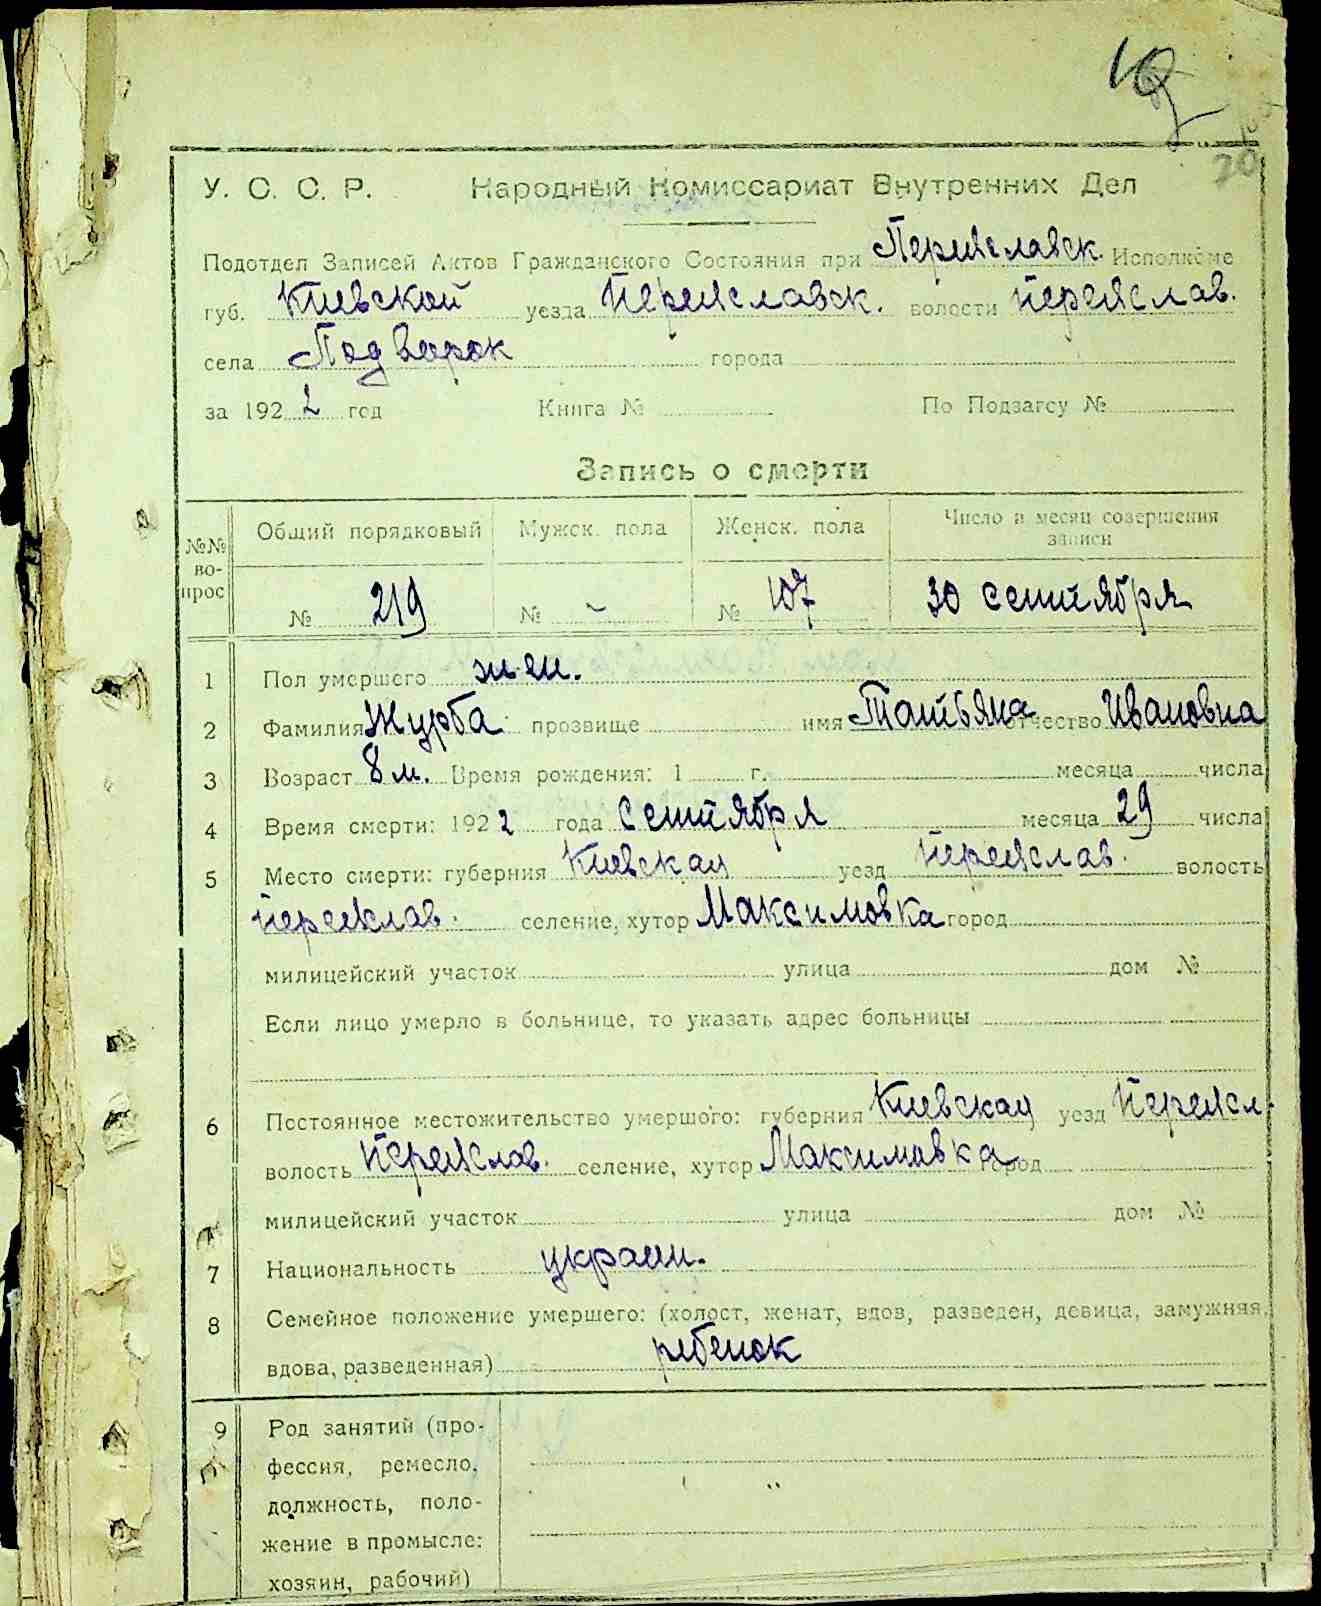 20
У. С. С. Р. Народный Комиссариат Внутренних Дел
Подотдел Записей Актов Гражданского Состояния при Переяславск. Исполкоме
губ. Киевской уезда Переяславск. волости Переяслав.
села Подварок города
за 1922 год Книга № По Подзагсу №
Запись о смерти
№№ вопрос Общий порядковый Мужск. пола Женск. пола Число и месяц совершения записи
№ 219 № – № 107 30 сентября
1 Пол умершего жен.
2 Фамилия Журба прозвище имя Татьяна отчество Ивановна
3 Возраст 8 м. Время рождения: 1 г. месяца числа
4 Время смерти: 1922 года сентября месяца 29 числа
5 Место смерти: губерния Киевская уезд Переяслав. волость
Переяслав. селение, хутор Максимовка город
милицейский участок улица дом №
Если лицо умерло в больнице, то указать адрес больницы
6 Постоянное местожительство умершого: губерния Киевская уезд Переясл.
волость Переяслав. селение, хутор Максимовка город
милицейский участок улица дом №
7 Национальность украин.
8 Семейное положение умершего: (холост, женат, вдов, разведен, девица, замужняя,
вдова, разведенная) ребенок
9 Род занятий (про-
фессия, ремесло,
должность, поло-
жение в промысле:
хозяин, рабочий)